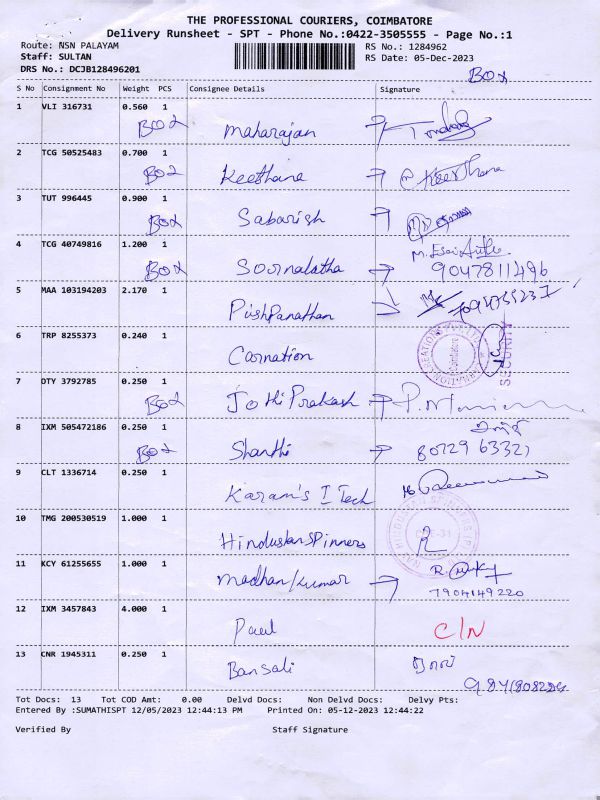 THE PROFESSIONAL COURIERS, COIMBATORE
Delivery Runsheet - SPT - Phone No.:0422-3505555 - Page No.:1
Route: NSN PALAYAM
Staff: SULTAN
DRS No.: DCJB128496201
RS No.: 1284962
RS Date: 05-Dec-2023
Box
S No Consignment No Weight PCS Consignee Details Signature
1 VLI 316731 0.560 1
Box Maharajan
2 TCG 50525483 0.700 1
Box Keethana Keerthana
3 TUT 996445 0.900 1
Box Sabarish
4 TCG 40749816 1.200 1
Box Sornalatha 9047811496
5 MAA 103194203 2.170 1
Pushpanathan
6 TRP 8255373 0.240 1
Carnation
SECURITY
7 DTY 3792785 0.250 1
Box Jothi Prakash
8 IXM 505472186 0.250 1
Box Shanthi 80729 63321
9 CLT 1336714 0.250 1
Karam's I Tech
10 TMG 200530519 1.000 1
Hindustan Spinners
11 KCY 61255655 1.000 1
Madhan Kumar
7904149220
12 IXM 3457843 4.000 1
Paul C/N
13 CNR 1945311 0.250 1
Bansali
Tot Docs: 13 Tot COD Amt: 0.00 Delvd Docs: Non Delvd Docs: Delvy Pts:
Entered By :SUMATHISPT 12/05/2023 12:44:13 PM Printed On: 05-12-2023 12:44:22
Verified By Staff Signature